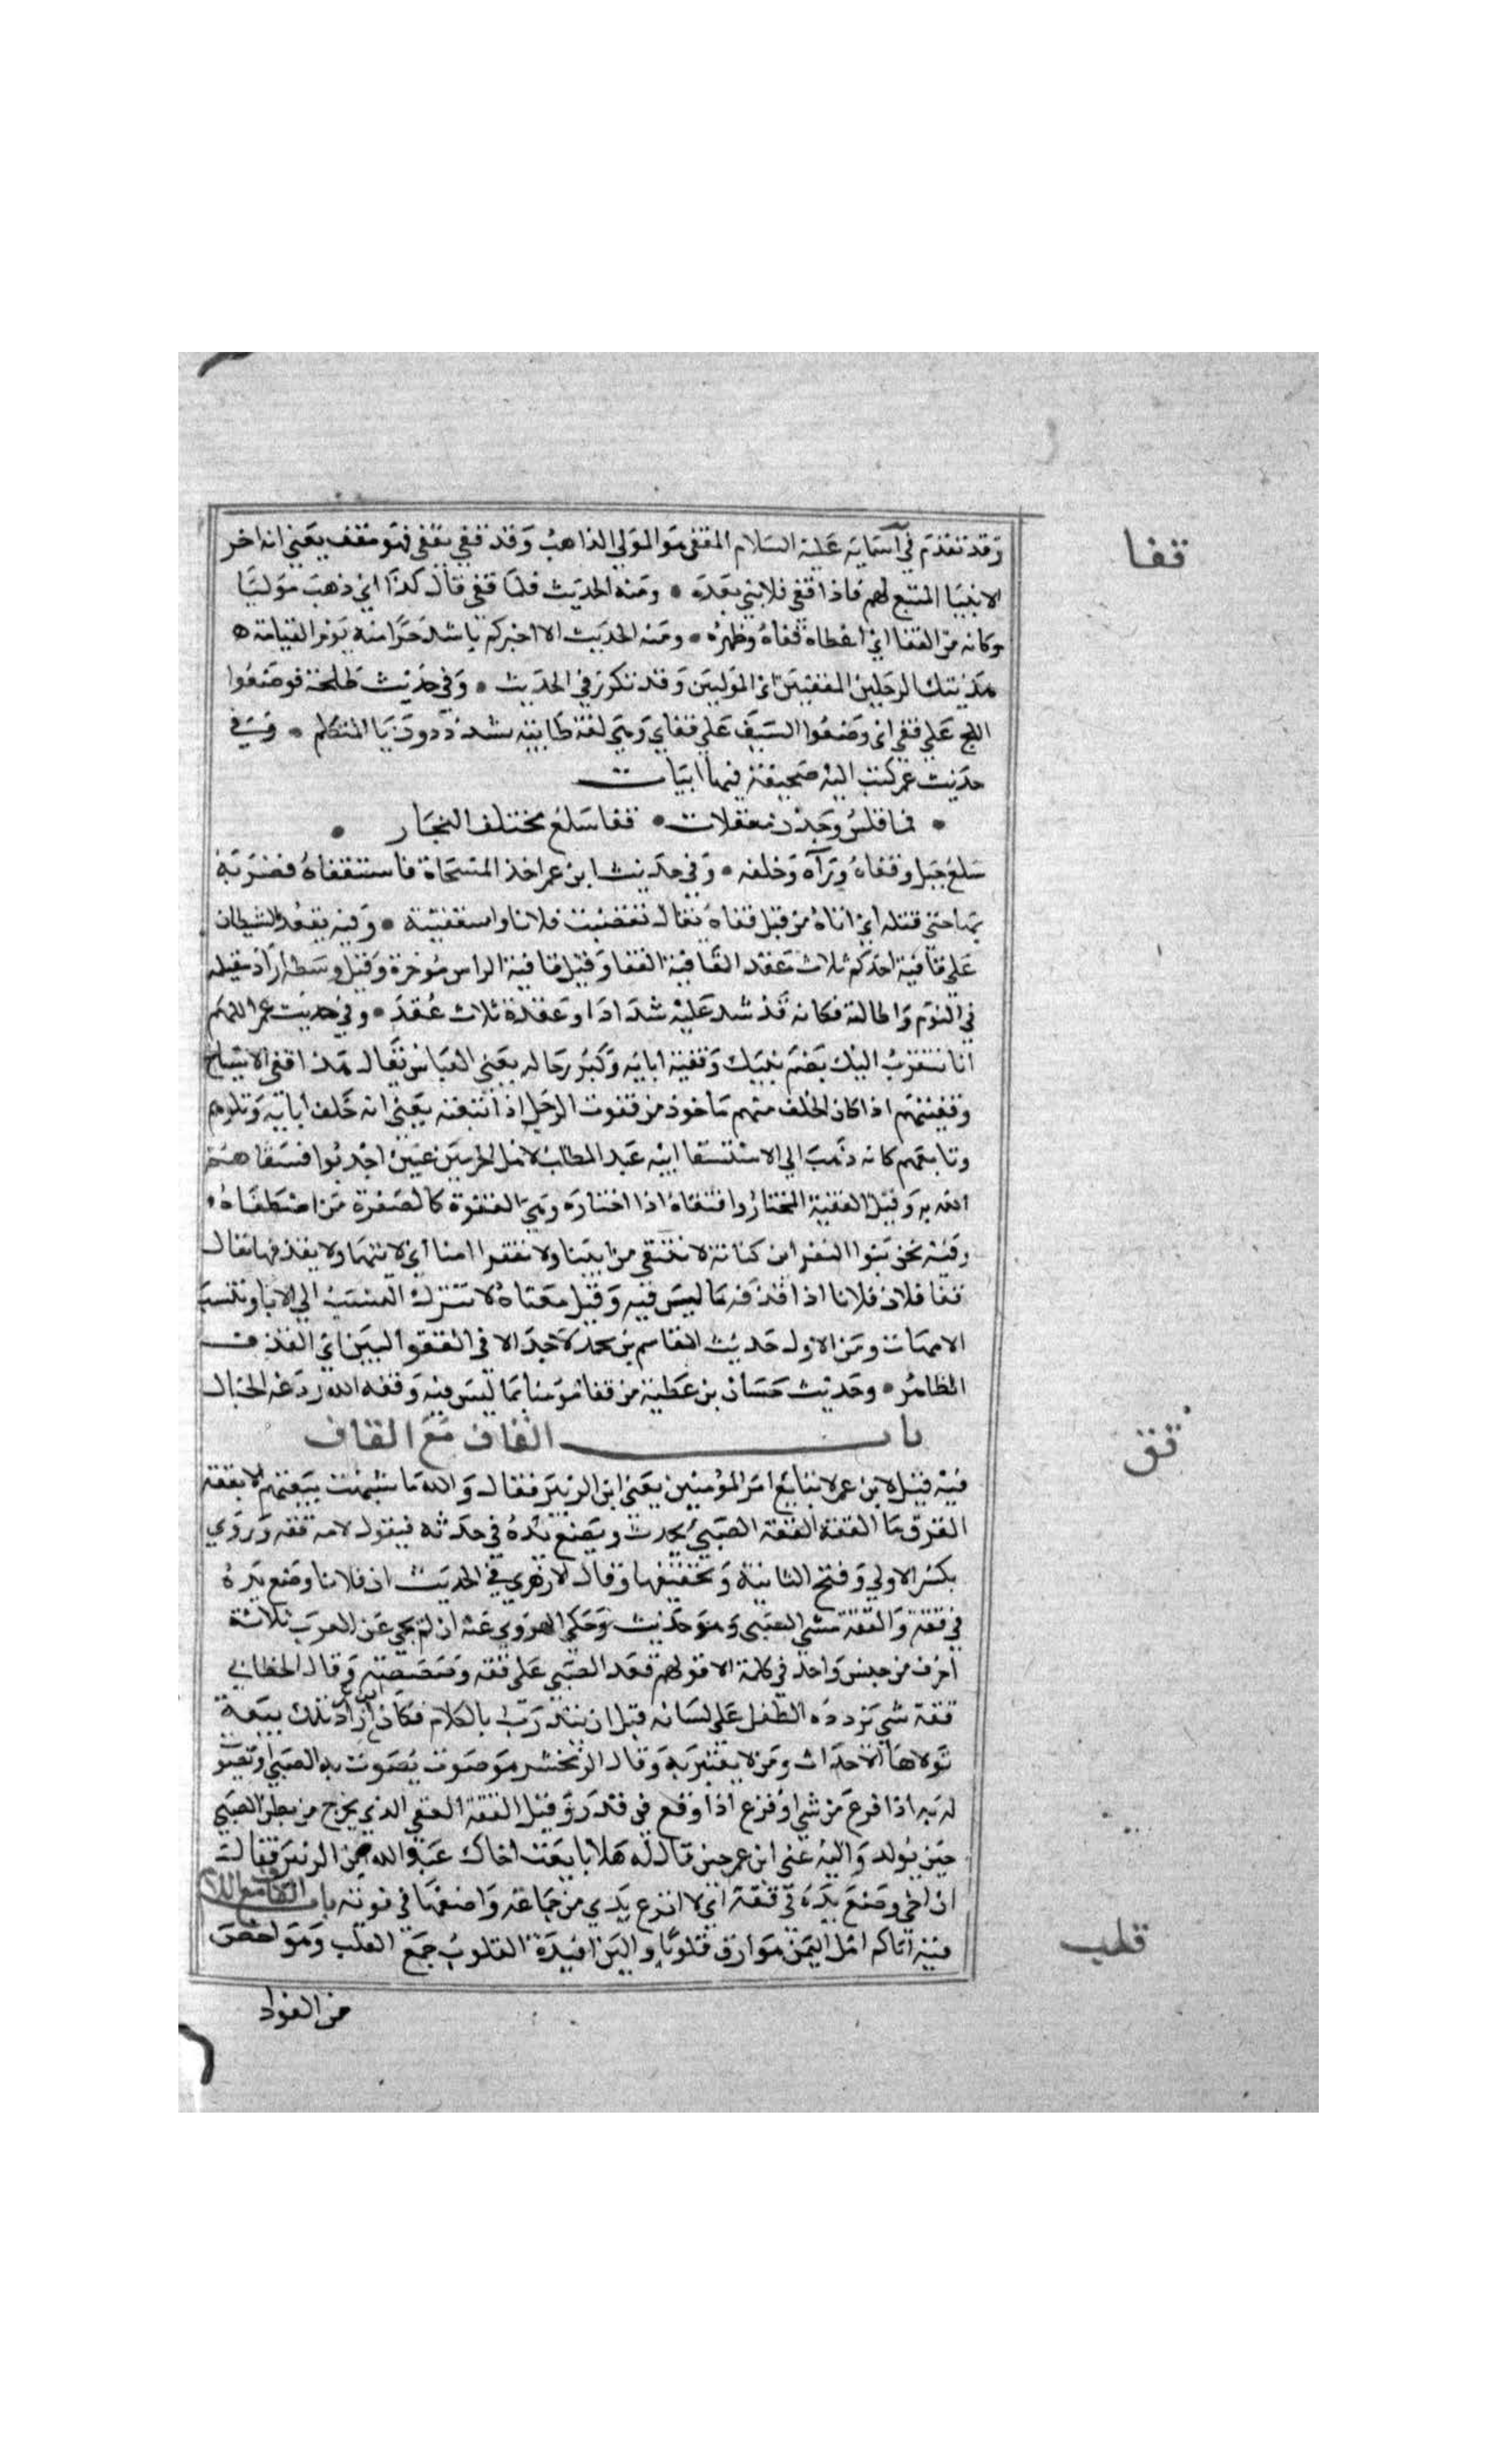 قفا
وقد تقدم في آسمايه عليه السلام المقفي هو المولي الذاهب وقد قفي يقفي فهو مقف يعني انه اخر
الانبيا المتبع لهم فاذا قفي فلا نبي بعده • ومنه الحديث فلما قفي قال كذا اي ذهب موليا
وكانه من القفا اي اعطاه قفاه وظهره • ومنه الحديث الا اخبركم باشد حرا منه يوم القيامة ه
هذينك الرجلين المقفيين اي الموليين وقد تكرر في الحديث • وفي حديث طلحة فوضعوا
اللج علي قفي اي وضعوا السيف علي قفاي وهي لغة طايية يشددون يا المتكلم • وفي
حديث عمر كتب اليه صحيفة فيها ابيات
• فما قلص وجدن معقلات • قفا سلع بمختلف النجار •
سلع جبل وقفاه ورآه وخلفه • وفي حديث ابن عمر اخذ المسحاة فاستقفاه فضربه
بها حتي قتله اي اتاه من قبل قفاه يقال تقفيت فلانا واستقفيته • وفيه يعقد الشيطان
علي قافية احدكم ثلاث عقد القافية القفا وقيل قافية الراس موخره وقيل وسطه اراد تثقيله
في النوم واطالته فكانه قد شد عليه شدادا وعقده ثلاث عقد • وفي حديث عمر اللهم
انا نتقرب اليك بعم نبيك وقفية ابايه وكبر رجاله يعني العباس يقال هذا قفي الاشياخ
وقفيتهم اذا كان الخلف منهم ماخوذ من قفوت الرجل اذا تبعته يعني انه خلف ابايه وتلوهم
وتابعهم كانه ذهب الي الاستسقا ابيه عبد المطلب لاهل الحرمين حين اجدبوا فسقاهم
الله به وقيل القفية المختار واقتفاه اذا اختاره وهي القفوة كالصفوة من اصطفاه •
وفيه نحن بنوا النضر ابن كنانة لا ننتفي من ابينا ولا نقفوا امنا اي لا نتهمها ولا نقذفها يقال
قفا فلان فلانا اذا قذفه بما ليس فيه وقيل معناه لا نترك النسب الي الابا وننتسب
الامهات ومن الاول حديث القاسم بن محمد لا حد الا في القفو البين اي القذف
الظاهر • وحديث حسان بن عطية من قفا مؤمنا بما ليس فيه وقفه الله ردغة الخبال
باب القاف مع القاف
قق
فيه قيل لابن عمر لا تبايع امير المؤمنين يعني ابن الزبير فقال والله ما شبهت بيعتهم الا بققة
القرق ما الققة الققة الصبي يحدث ويضع يده في حدثه فيقول لامه ققه وروي
بكسر الاولي وفتح الثانية وتخفيفها وقال الازهري في الحديث ان فلانا وضع يده
في ققة والققة مشي الصبي وهو حدث وحكي الهروي عنه انه لم يجي عن العرب ثلاثة
احرف من جنس واحد في كلمة الا قولهم قعد الصبي علي ققه وصصصه وقال الخطابي
ققة شي يردده الطفل علي لسانه قبل ان يتدرب بالكلام فكان ابن عمر اراد تلك بيعة
تولاها الاحداث ومن لا يعتبر به وقال الزمخشر هو صوت يصوت به الصبي او يصوت
له به اذا فزع من شي او فزع اذا وقع في قذر وقيل الققة العقي الذي يخرج من بطن الصبي
حين يولد واليه عني ابن عمر حين قال له هلا بايعت اخاك عبد الله بن الزبير فقال
ان اخي وضع يده في ققة اي لا انزع يدي من جماعة واضعها في فرقة باب القاف مع اللام
قلب
فيه اتاكم اهل اليمن هم ارق قلوبا والين افيدة القلوب جمع القلب وهو اخص
من الفواد